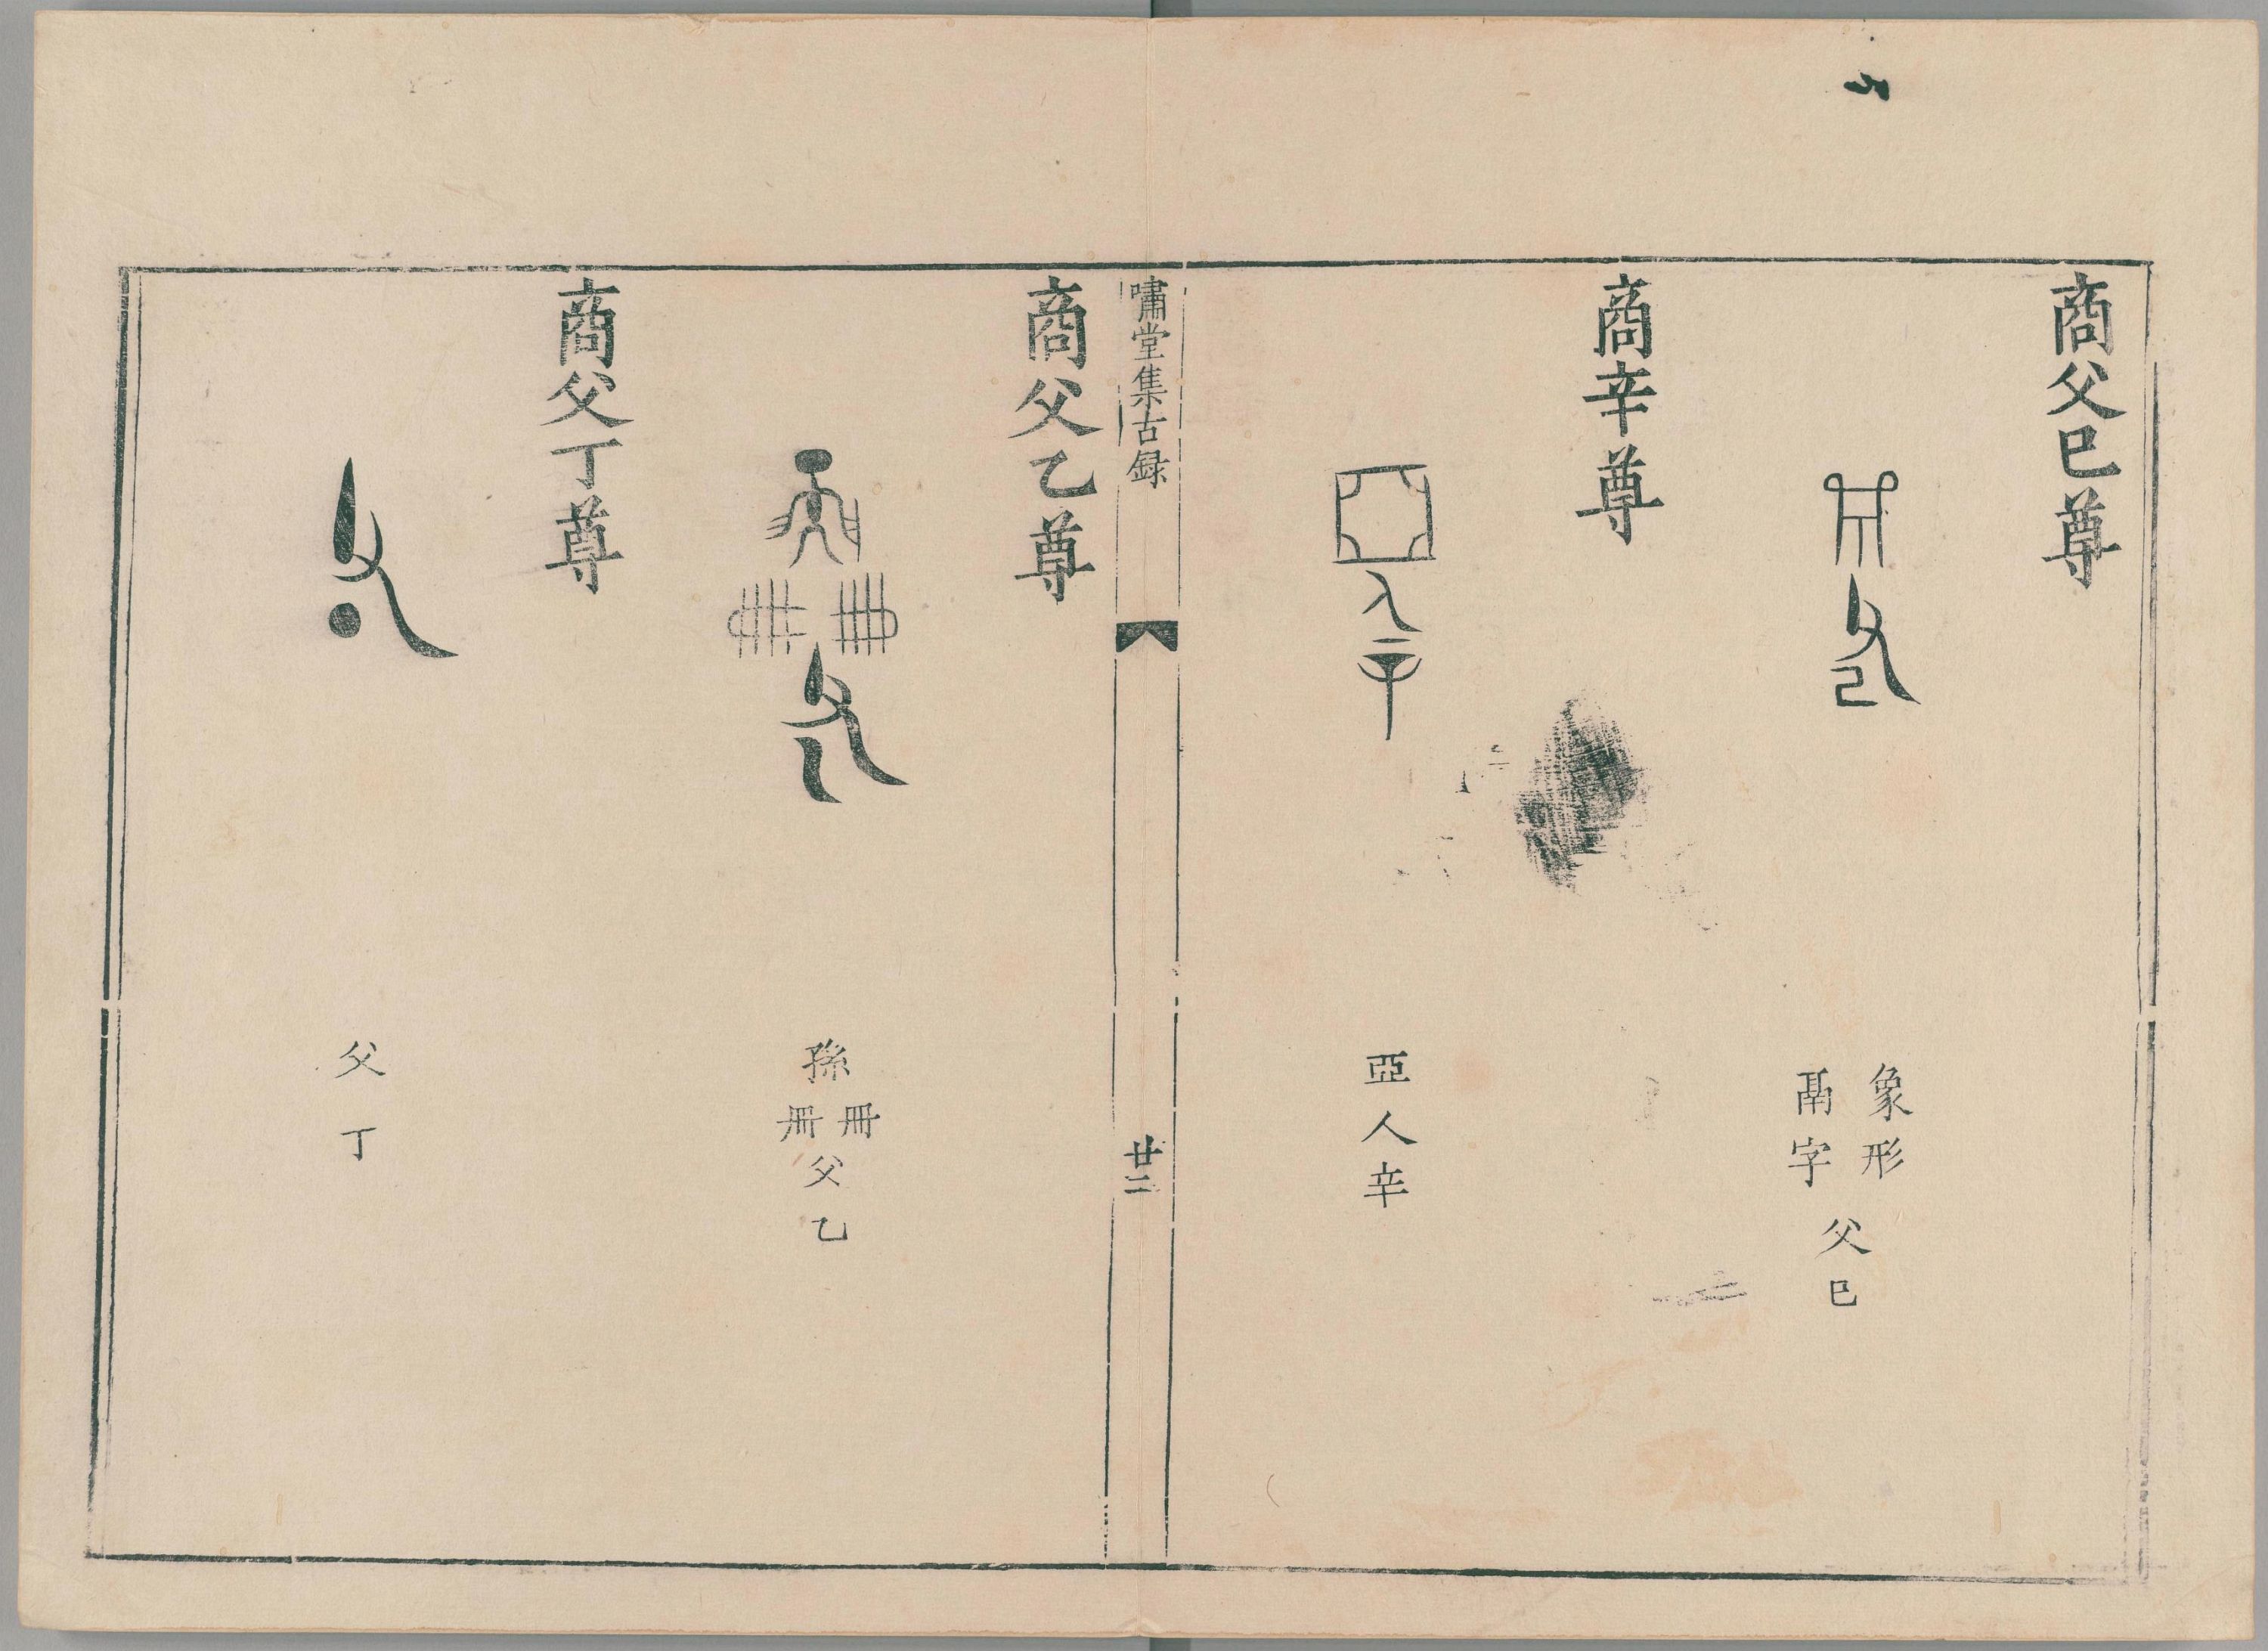 商父巳尊
象形
鬲字
父巳
商辛尊
亞人辛
嘯堂集古録
廿二
商父乙尊
孫
冊冊
父乙
商父丁尊
父丁